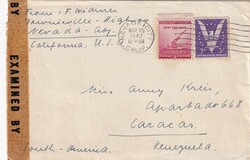 BY
EXAMINED BY
From: F. Widmer
Downieville-Highway
Nevada-City
California, U.S.
NEVADA CITY
CALIF.
1943
Miss Amy Kreis,
Apartado 668
Caracas
Venezuela
South-America